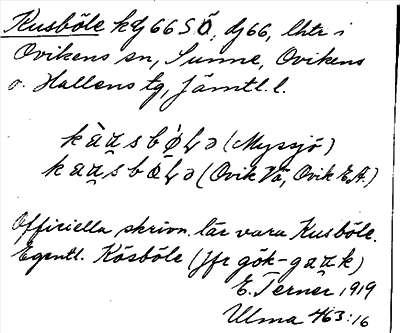 Kusböle kg 66 SÖ, dg 66, lhtr i
Ovikens sn, Sunne, Ovikens
o. Hallens tg, Jämtl. l.
(Myssjö)
(Ovik Vä, Ovik E.A.)
Officiella skrivn. lär vara Kusböle.
Egentl. Kösböle (jfr gök - gaʊk)
E. Ternér 1919
Ulma 463:16